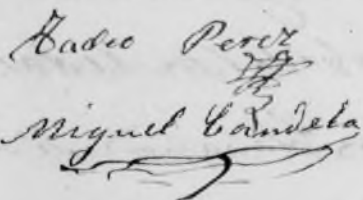 Tadeo Perez
Miguel Candela